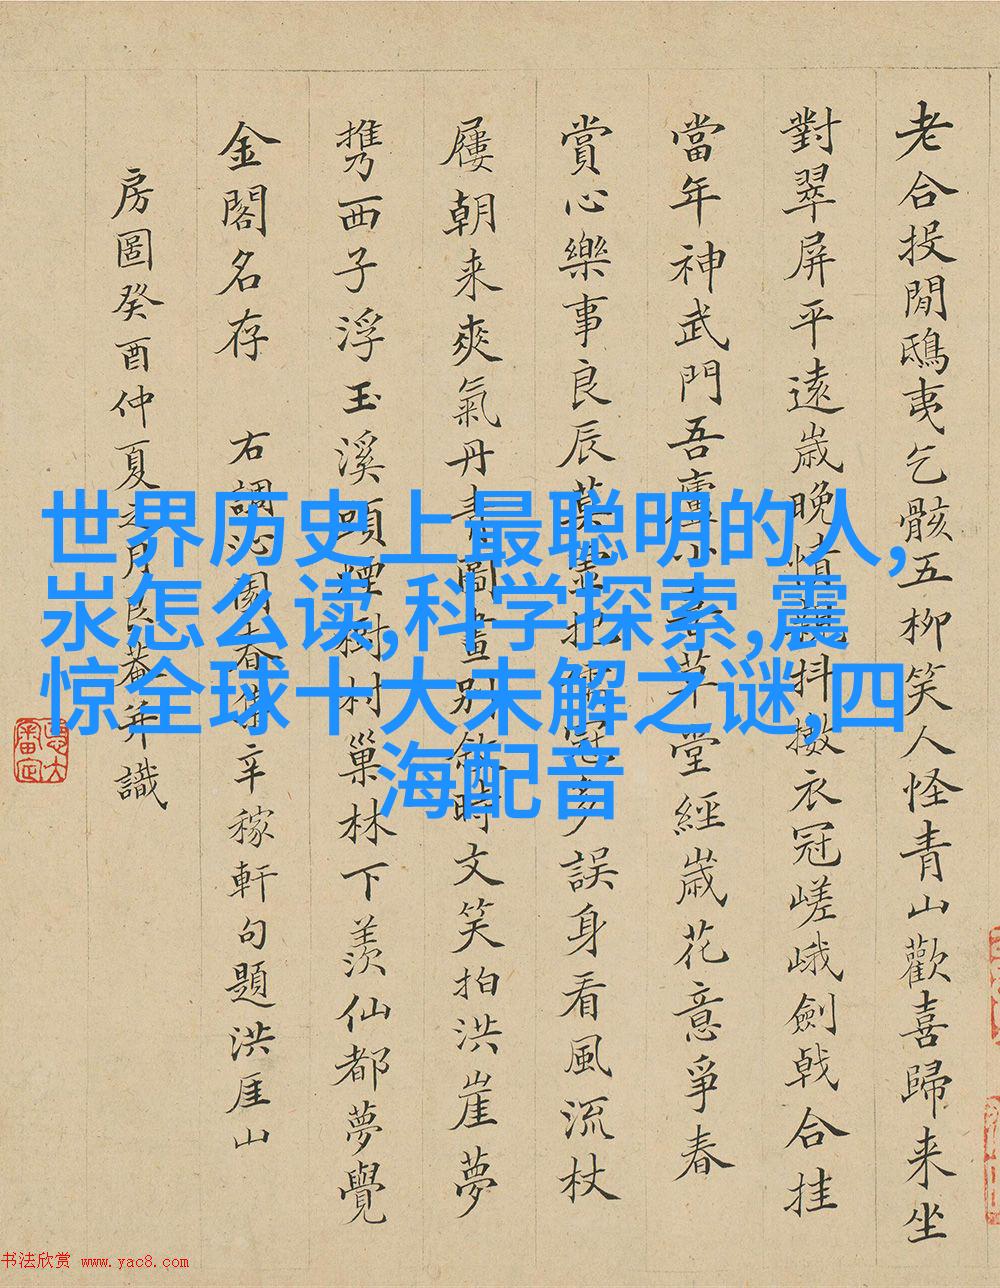 老合投閒鴟夷乞骸五柳笑人怪青山歡喜歸来坐
對翠屏平遠歳晚情親抖擻衣冠嵯峨劍戟合挂
當年神武門吾廬小草堂經歳花意爭春
賞心樂事良辰莫把儒冠多誤身看風流杖
屨朝来爽氣丹青圖畫別時文笑拍洪崖夢
携西子浮玉溪頭煙樹村巢林下羨仙都夢覺
金閣名存 右調沁園春集辛稼軒句題洪厓山
房圖癸酉仲夏之月艮菴并識
世界历史上最聪明的人,
氺怎么读,科学探索,震
惊全球十大未解之谜,四
海配音
书法欣赏 www.yac8.com